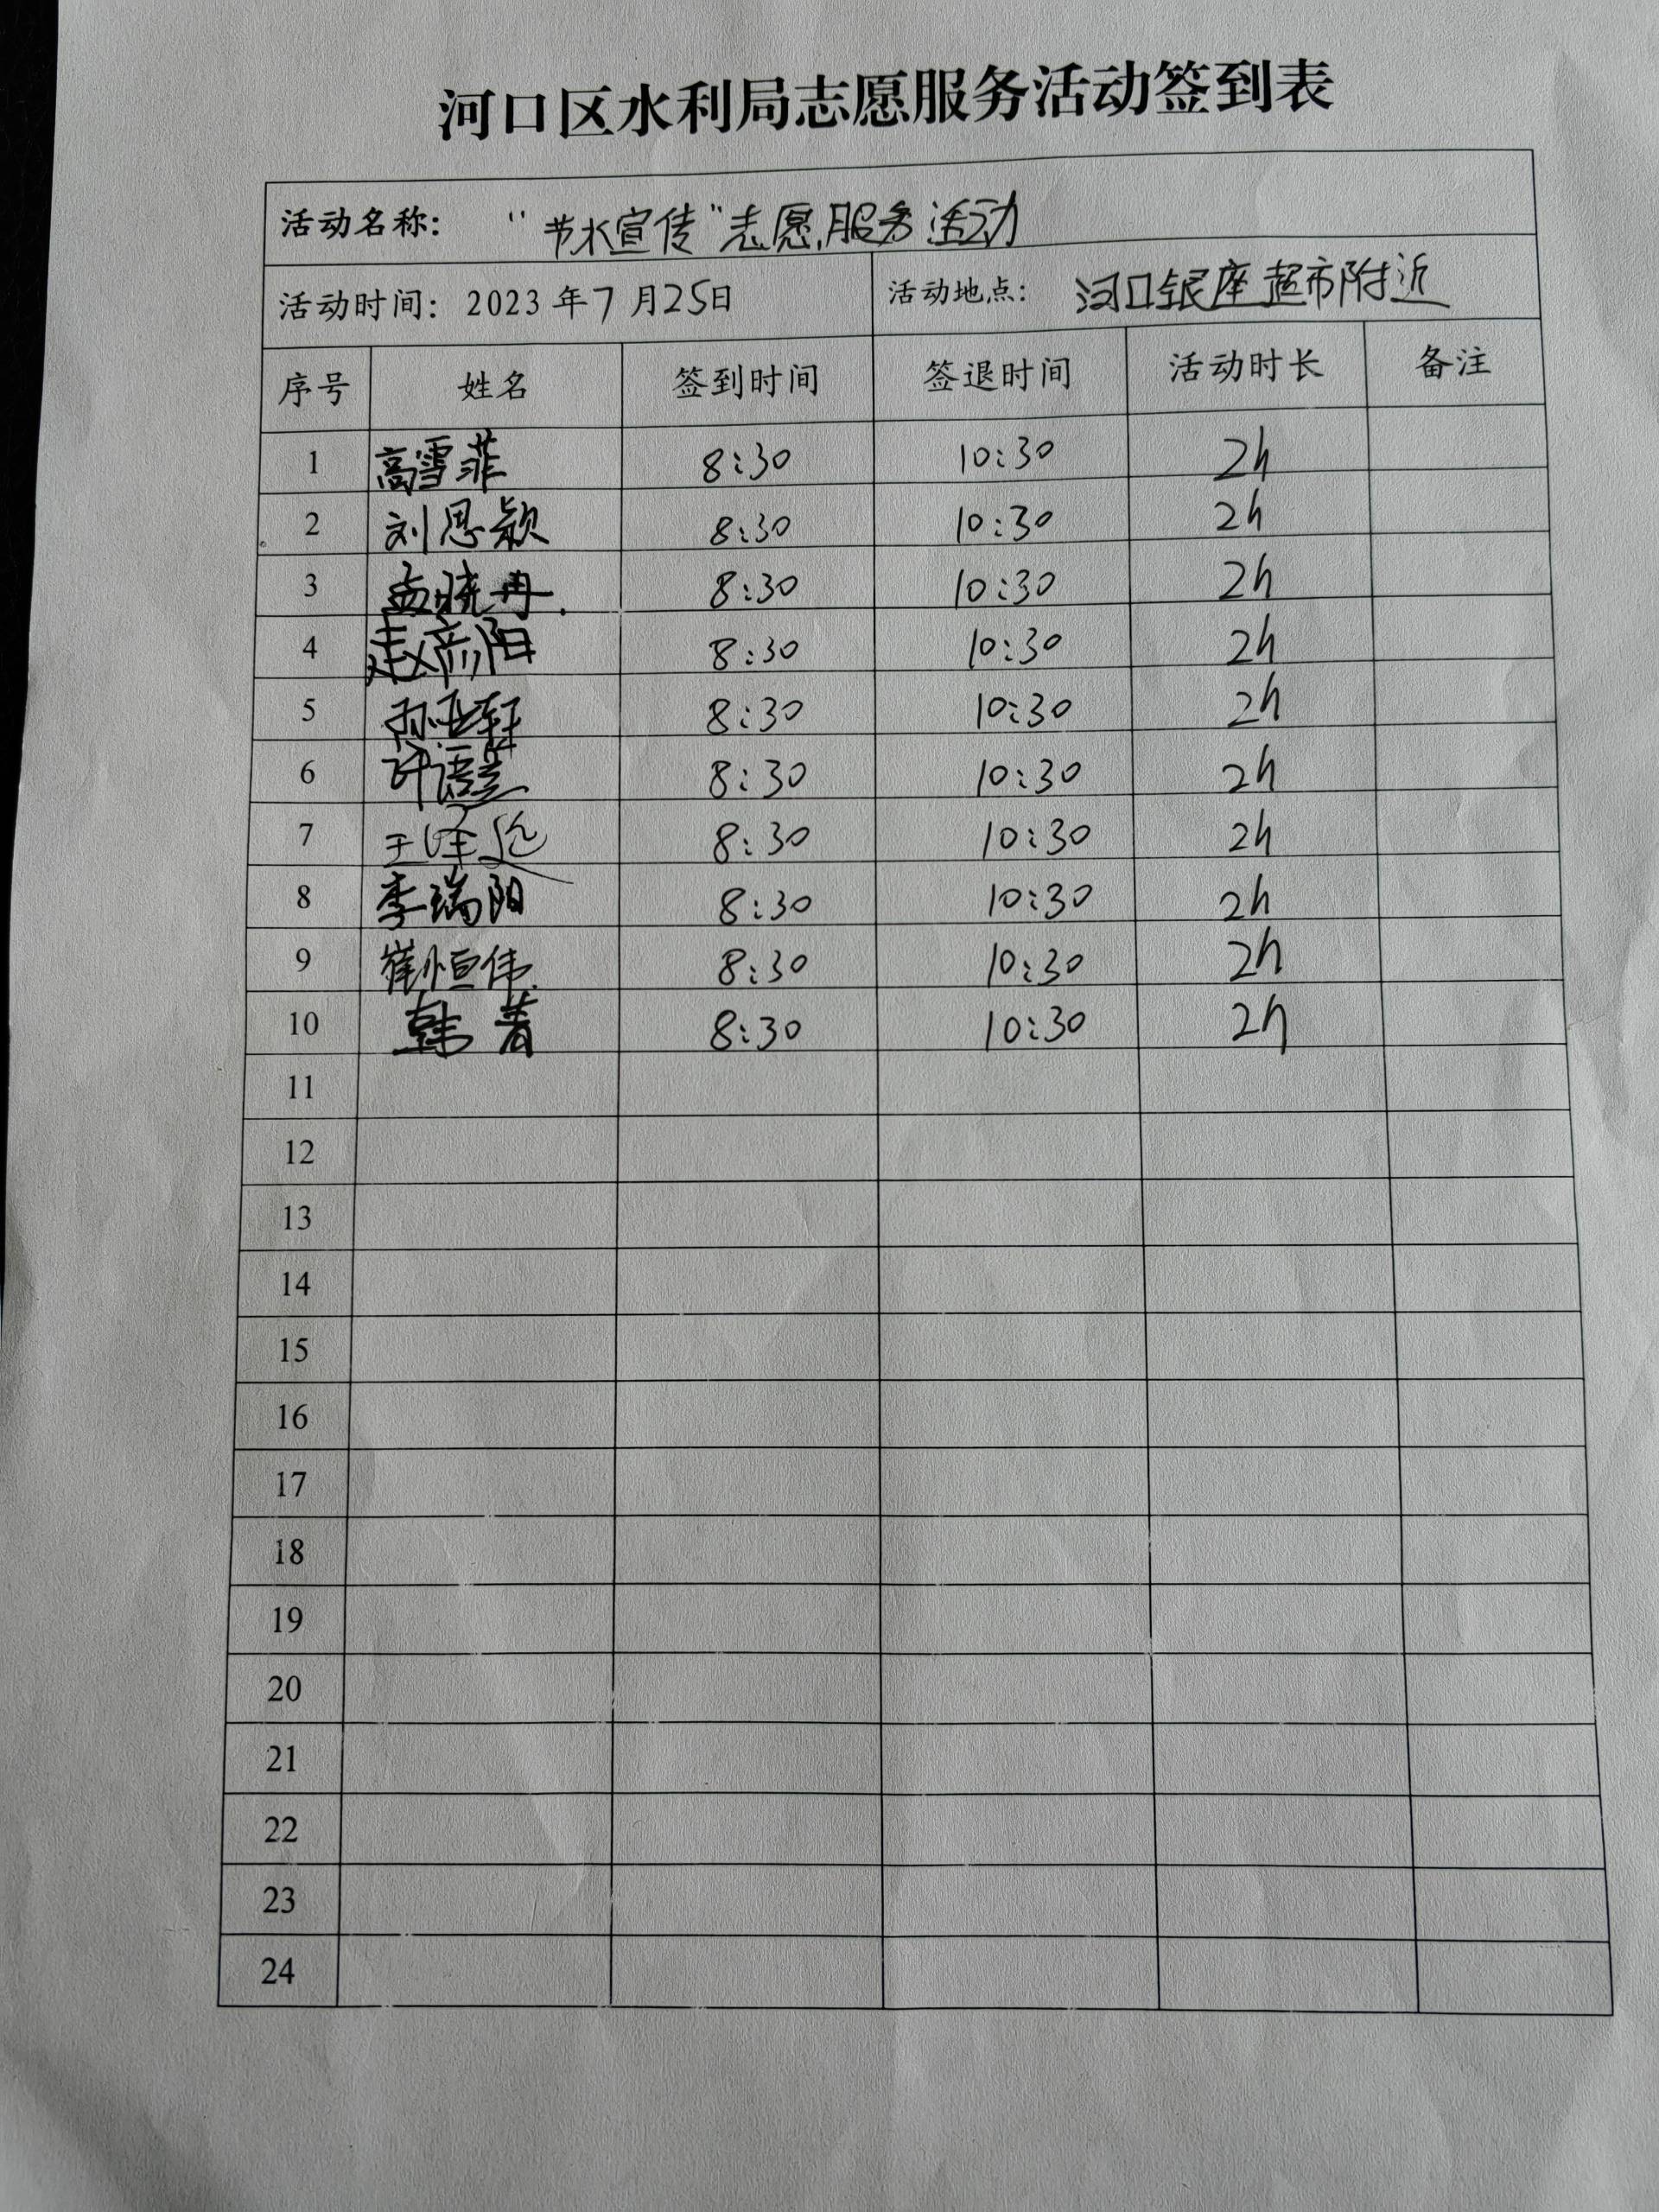 河口区水利局志愿服务活动签到表
活动名称： “节水宣传”志愿服务活动
活动时间：2023年7月25日 活动地点： 河口银座超市附近
序号 姓名 签到时间 签退时间 活动时长 备注
1 高雪菲 8:30 10:30 2h
2 刘思颖 8:30 10:30 2h
3 孟晓丹. 8:30 10:30 2h
4 8:30 10:30 2h
5 孙亚轩 8:30 10:30 2h
6 8:30 10:30 2h
7 8:30 10:30 2h
8 李瑞阳 8:30 10:30 2h
9 崔恒伟. 8:30 10:30 2h
10 韩菁 8:30 10:30 2h
11
12
13
14
15
16
17
18
19
20
21
22
23
24